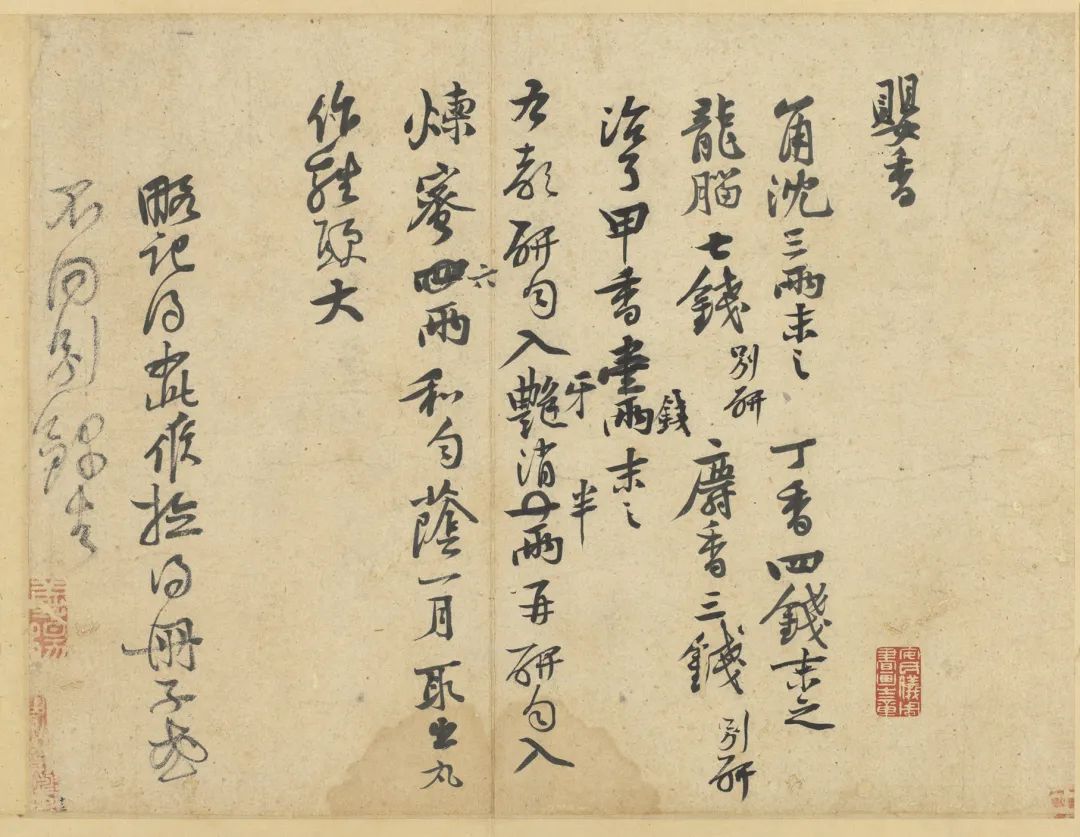 嬰香
角沈三兩末之 丁香四錢末之
龍腦七錢 別研 麝香三錢 別研
治了甲香壹兩錢末之
右都研勻入艷牙消半兩再研勻入
煉蜜四六兩和勻蔭一月取出丸
作雞頭大
略記得如此候檢得冊子或
不同別錄去